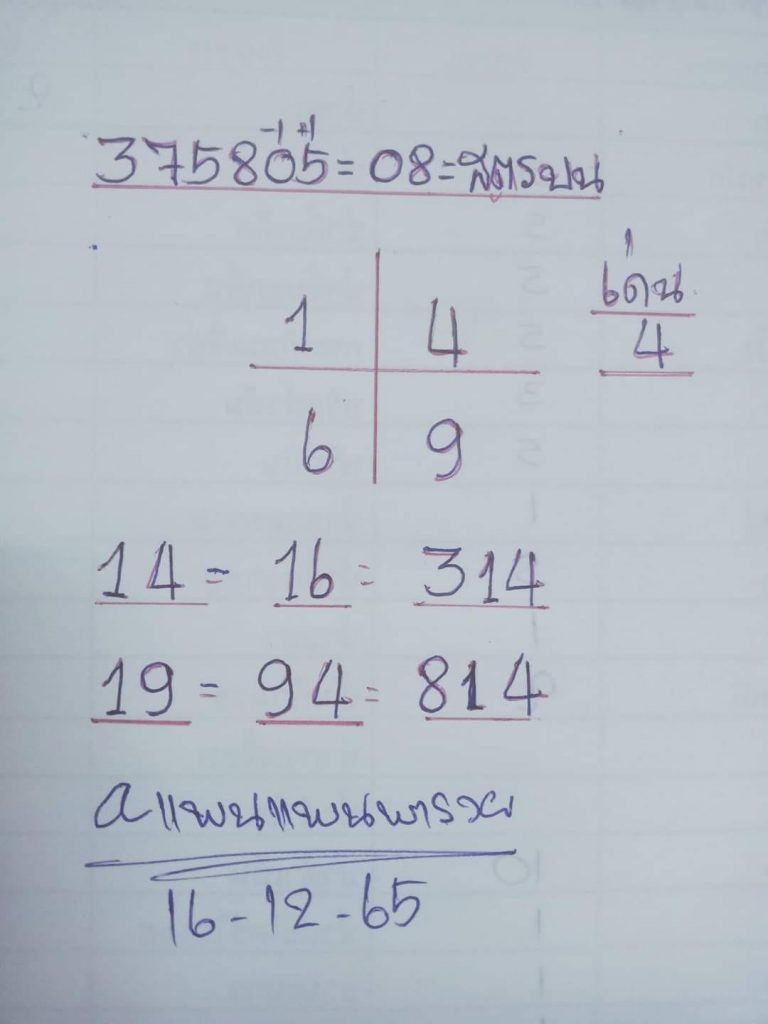 -1 +1
375805=08=สูตรบน
1 4
เด่น
4
6 9
14= 16= 314
19= 94= 814
aแพนแพนพารวย
16-12-65